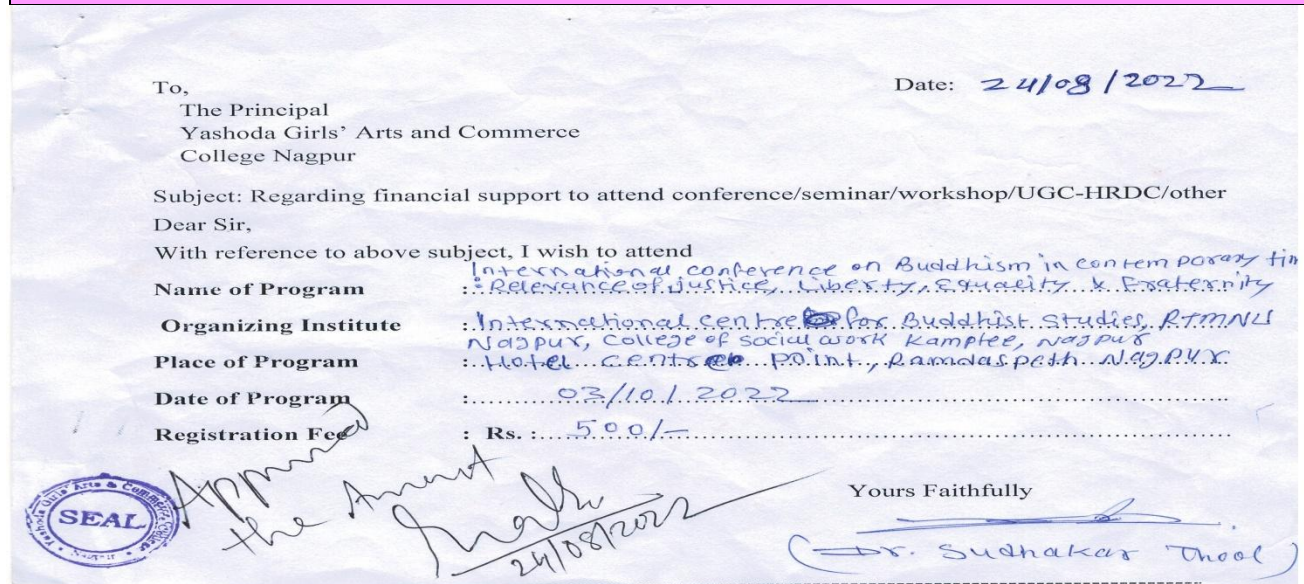 To,
Date: 24/08/2022
The Principal
Yashoda Girls' Arts and Commerce
College Nagpur
Subject: Regarding financial support to attend conference/seminar/workshop/UGC-HRDC/other
Dear Sir,
With reference to above subject, I wish to attend
International conference on Buddhism in contemporary tim
Name of Program : Relevance of justice, Liberty, Equality & Fraternity
Organizing Institute : International centre for Buddhist Studies, RTMNU
Nagpur, College of Social work Kamptee, Nagpur
Place of Program : Hotel centre point, Ramdaspeth Nagpur.
Date of Program : 03/10/2022
Registration Fee : Rs. : 500/-
Approved
the Amount
24/08/2022
Yashoda Girls' Arts & Commerce College
SEAL
Yours Faithfully
(Dr. Sudhakar Thool)